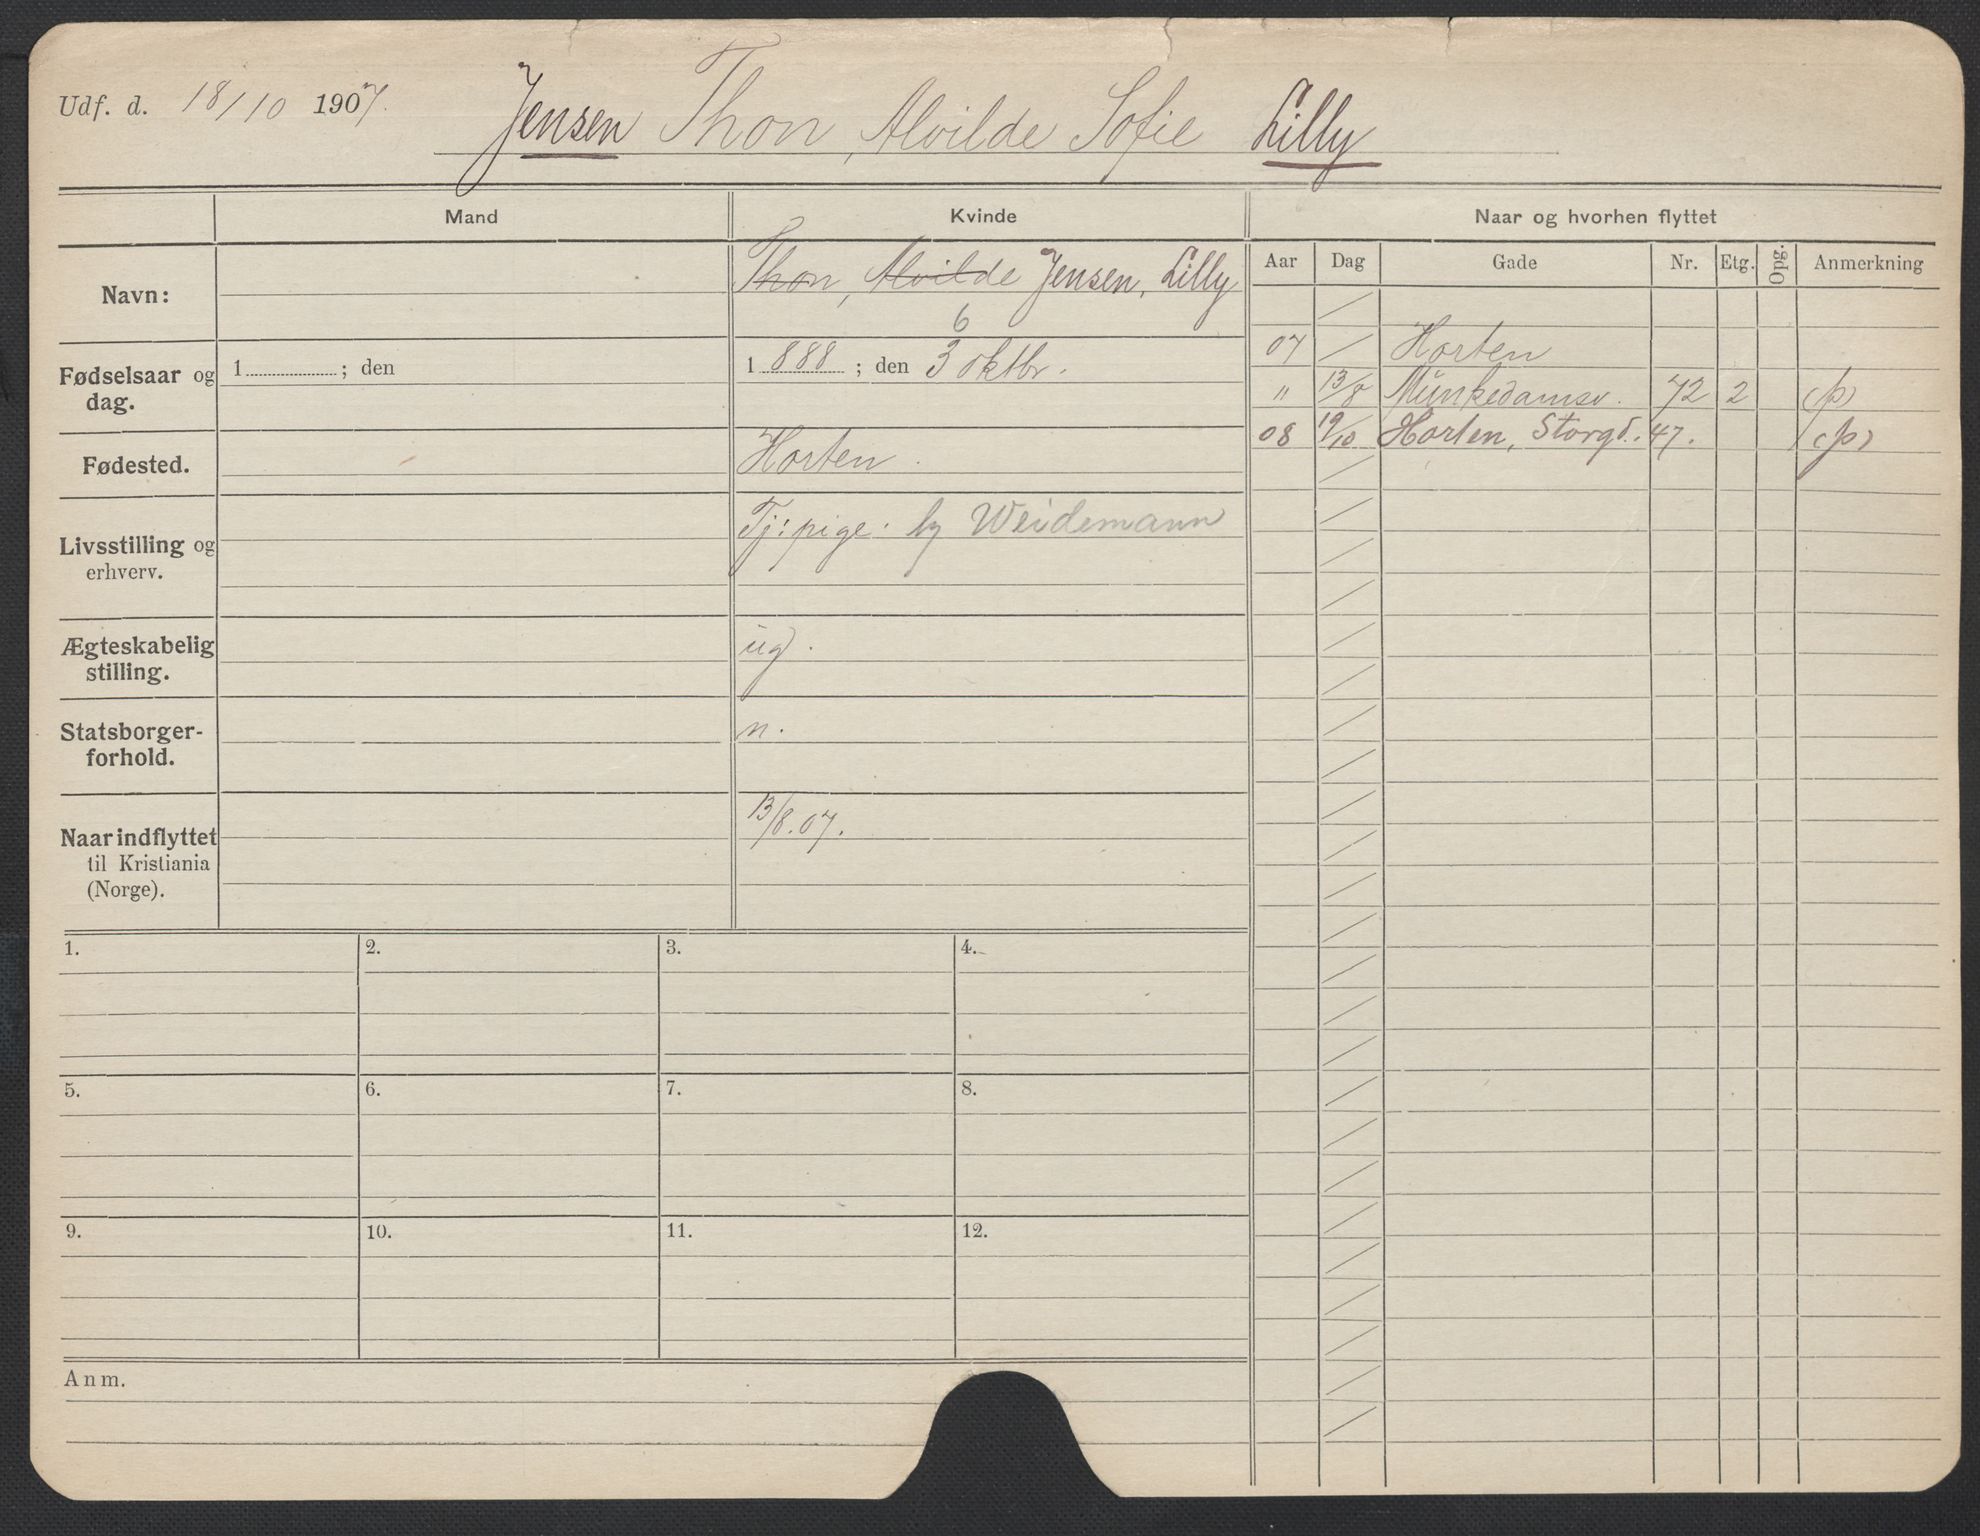 Udf. d. 18/10 1907.
Jensen Thon, Alvilde Sofie Lilly
Mand
Kvinde
Naar og hvorhen flyttet
Aar Dag Gade Nr. Etg. Opg. Anmerkning
Navn:
Thon, Alvilde Jensen, Lilly
Fødselsaar og dag.
1 ; den
6
1 888 ; den 3 oktbr.
07 Horten
" 13/8 Munkedamsv. 72 2 (p)
08 19/10 Horten, Storgd. 47. (p)
Fødested.
Horten.
Livsstilling og
erhverv.
Tj: pige: hg Weidemann
Ægteskabelig
stilling.
ug.
Statsborger-
forhold.
n.
Naar indflyttet
til Kristiania
(Norge).
13/8.07.
1. 2. 3. 4.
5. 6. 7. 8.
9. 10. 11. 12.
Anm.